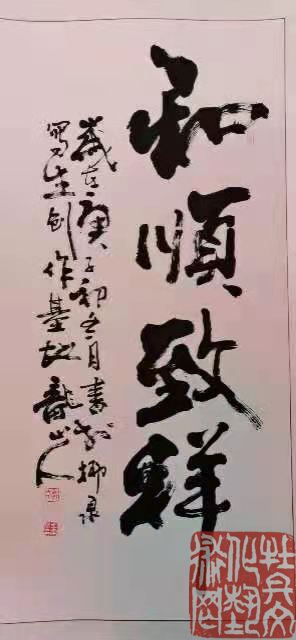 和順致祥
歲在庚子初冬月書於柳泉
寫生創作基地 龍山人
牡丹文
化藝